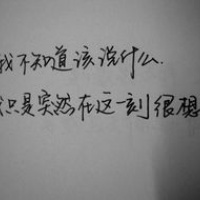 我不知道该说什么.
只是突然在这一刻很想